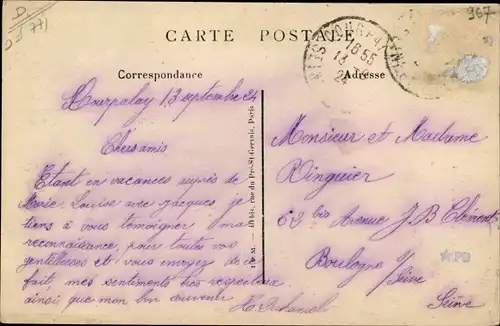 967
D
771
CARTE POSTALE
Correspondance
Adresse
18 55
13
24
Dourpalay 13 septembre 24
Chers amis
Etant en vacances auprès de
Marie Louise avec Jacques je
tiens à vous temoigner ma
reconnaissance, pour toutes vos
gentillesses et vous envoyez de ce
fait, mes sentiments très respectueux
ainsi que mon bon souvenir
Monsieur et Madame
Ringuier
62 bis Avenue J B Clément
Boulogne s/ Seine
Seine
bis, rue du Pré-St-Gervais, Paris
PD